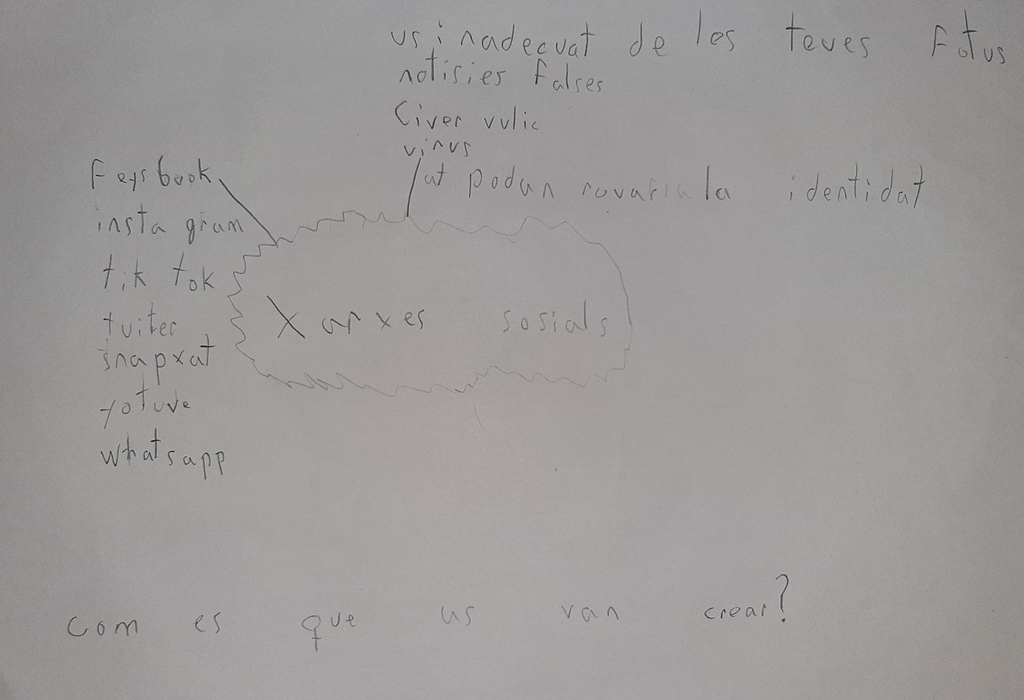 us inadecuat de les teves Fotus
notisies Falses
Civer vulic
virus
at podan rovar la identidat
Feysbook
insta gram
tik tok
tuiter
snapxat
yotuve
whatsapp
Xarxes sosials
Com es que us van crear?